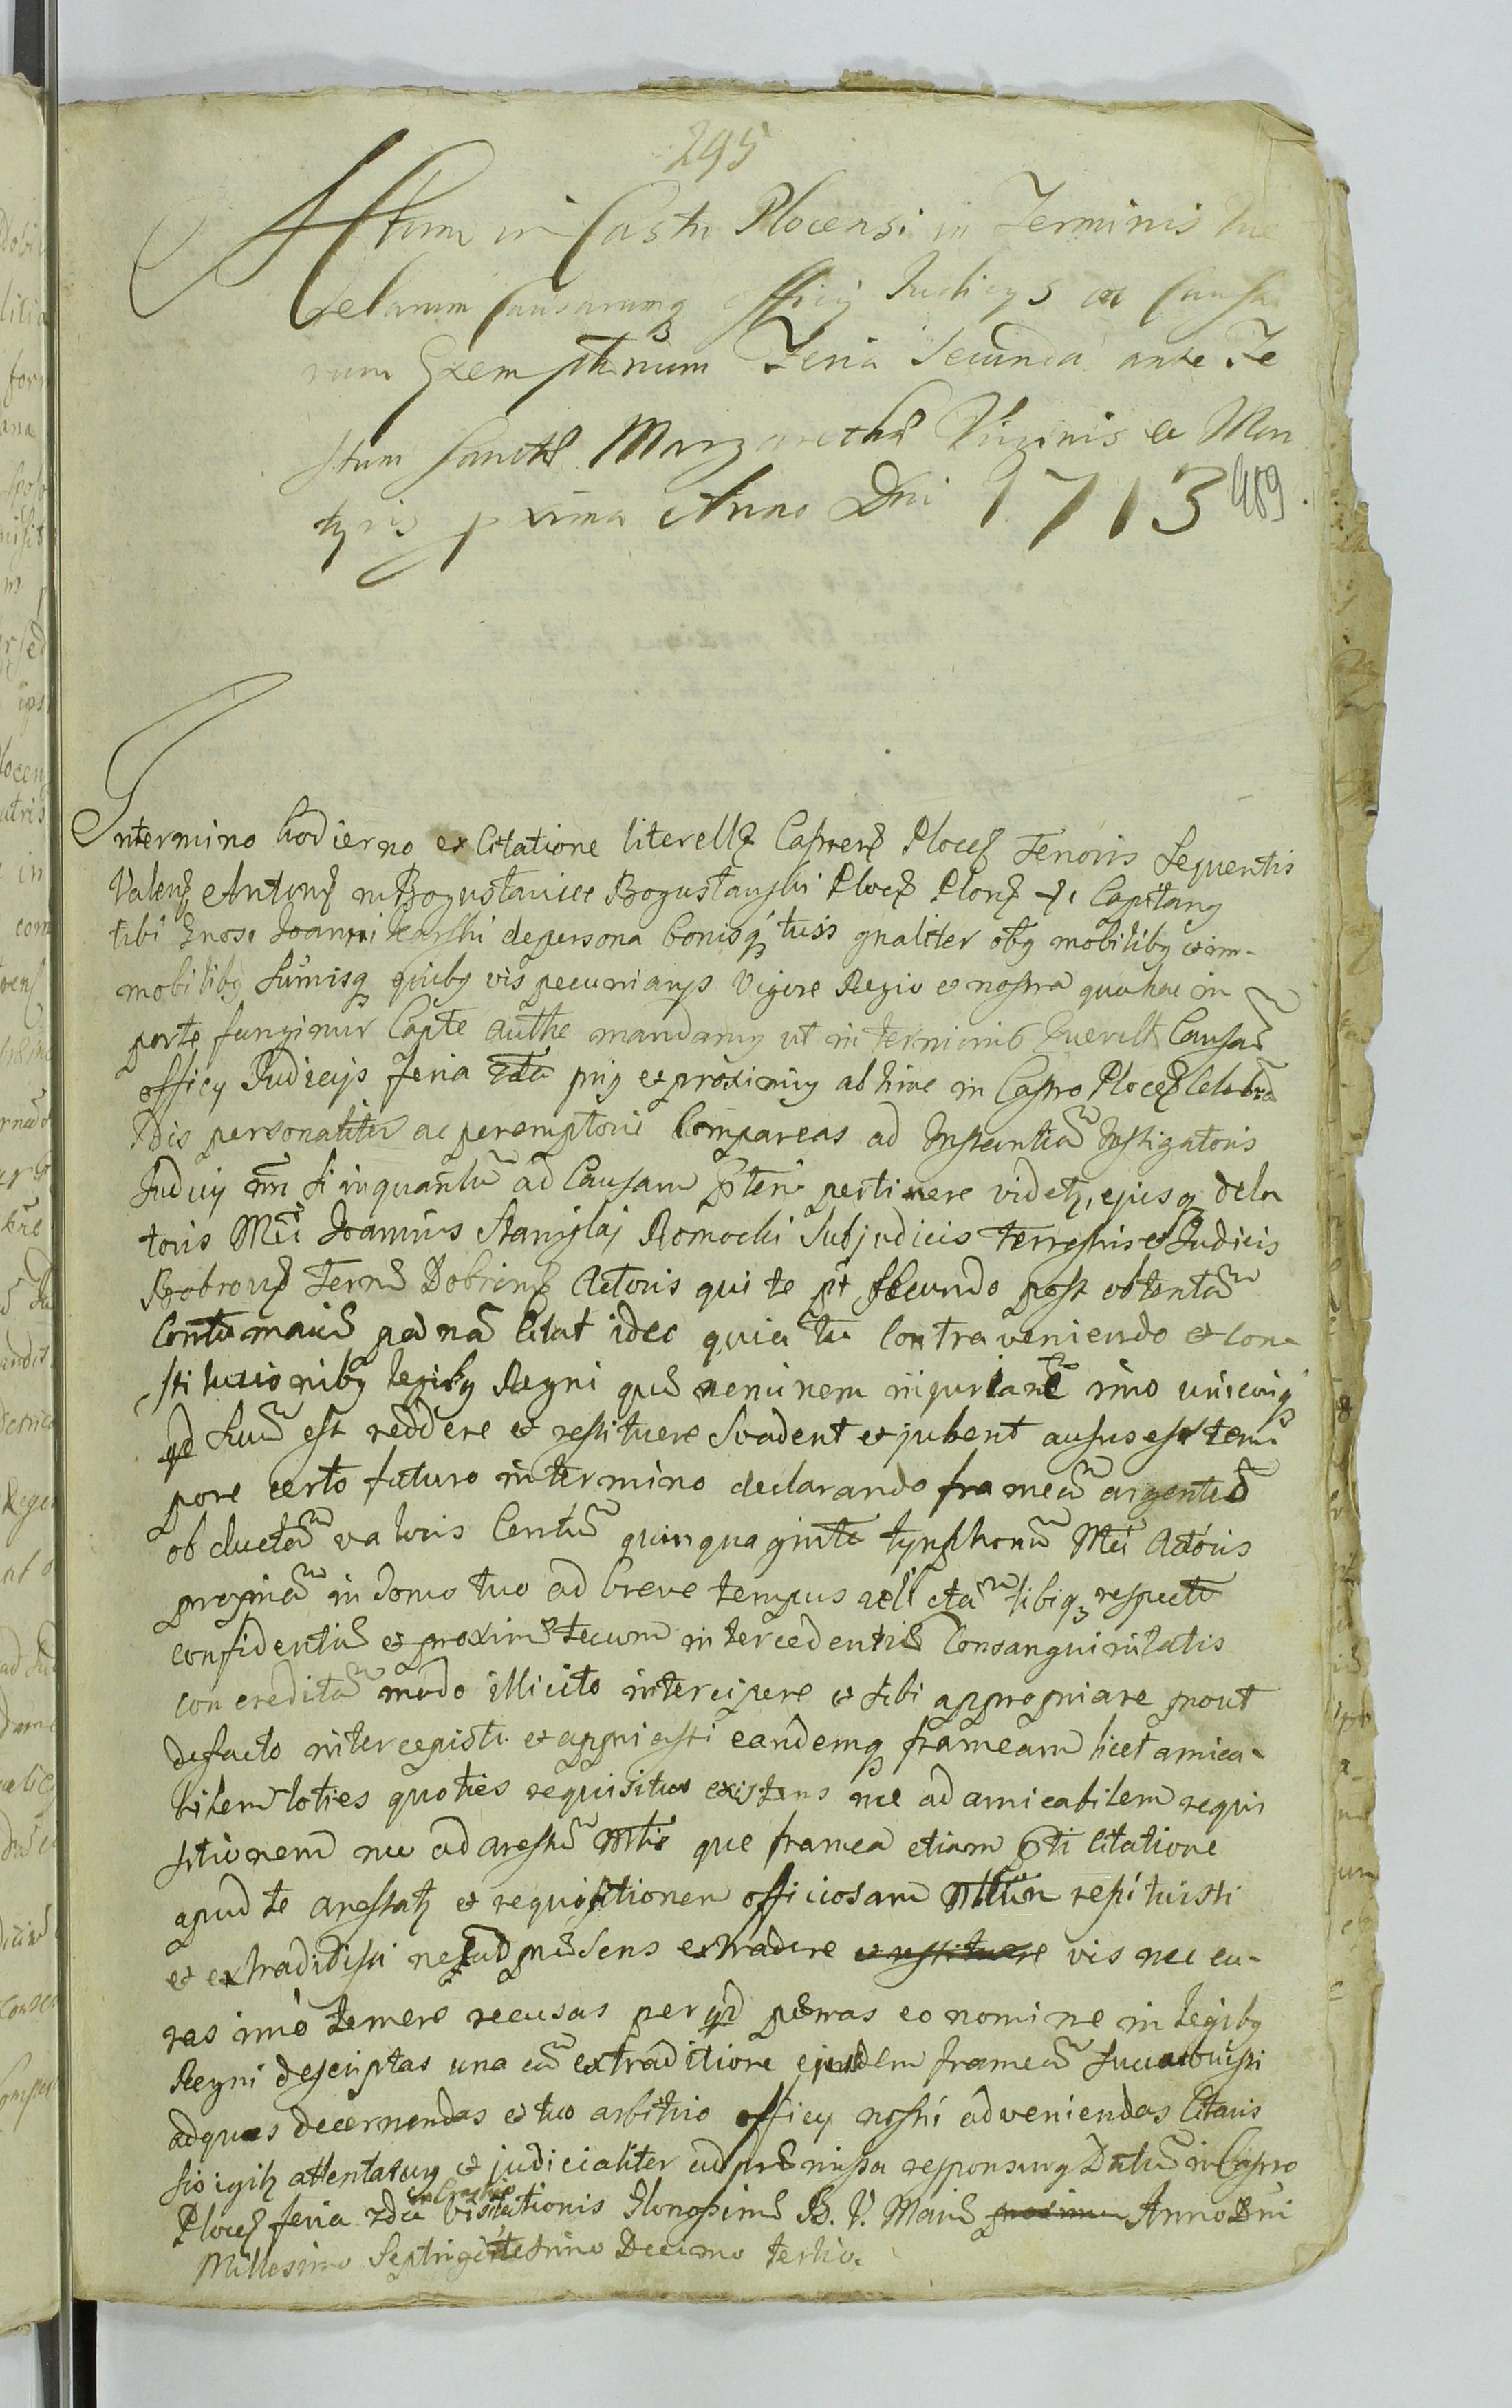 295
Actum in Castro Plocensi in Terminis Que
relarum Causarumq officij Judicijs ac Causa
rum Exemptarum Feria Secunda ante Fe
stum Sanctæ Margarethæ Virginis et Mar
tyris proxima Anno Dni 1713
489
In termino hodierno ex Citatione literali Castren Plocen Tenoris Sequentis
Valen Anton in Bogusławice Bogusławski Ploce Plon Capitang
tibi Gnoso Joanni Karski de persona bonisq tuis gnaliter obq mobilibq et im-
mobilibq Sumisq quibq vis pecuniarijs Vigore Regio et nostra qua hac in
parte fungimur Capte authe mandamq ut in terminis Querell Causaru
officij Judicijs feria 2da priq et proximiq ab hinc in Castro Plocen Celebra
dis personaliter ac peremptorie Compareas ad Instantia Instigatoris
Judicij nri si in quantu ad Causam pnte pertinere videtq, ejusq dela
toris Mci Joannis Stanislaj Romocki Subjudicis Terrestris et Judicis
Terrs Dobrinen Actoris qui te pt secundo post obtenta
Contumaciæ pœna Citat ideo quia tu Contraveniendo et con-
stitutionibq legibq Regni quæ neminem injuriare imo unicuiq
qd Suu est reddere et restituere Svadent et jubent ausus es tem-
pore certo futuro in termino declarando framea argenteo
obducta valoris Centu quinquaginta tynphonu Mci Actoris
propria in domo tuo ad breve tempus relicta tibiq respectu
confidentiæ et proximæ tecum intercedentis Consanguinitatis
concredita modo illicito intercipere et sibi appropriare prout
defacto intercepisti et appriasti eandemq frameam licet amica-
bilem toties quoties requisitus existens nec ad amicabilem requi
sitionem nec ad arestu que framea etiam pnti Citatione
apud te arestatq et requisitionem officiosam restituisti
et extradidisti nec ad præsens extradere et restituere vis nec cu-
ras imo temere recusas per qd pœnas eo nomine in legibq
Regni descriptas una cu extraditione ejusdem frameæ succubuisti
ad quas decernendas et tuo arbitrio officij nostri adveniendas Citaris
sis igitq attentatuq et judicialiter ad præmissa responsurq Datu in Castro
Ploce feria 2da in Crastino Visitationis Glorosissimæ B. V. Mariæ proxima Anno Dni
Millesimo Septingentesimo Decimo tertio.